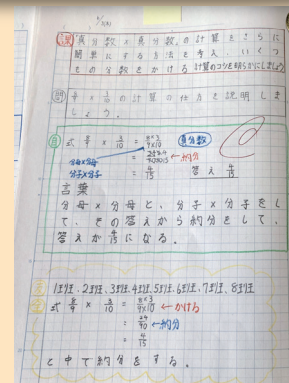 5/7(火)
課 真分数×真分数の計算をさらに
簡単にする方法を考え、いくつ
もの分数をかける計算のコツを明らかにしましょう
問 8/9×3/10の計算の仕方を説明しま
しょう。
自 式 8/9 × 3/10 = 8×3/9×10 真分数
分母×分母 = 24/90 ←約分
分子×分子 = 4/15 答え 4/15
言葉
分母×分母と、分子×分子をし
て、その答えから約分をして、
答えが4/15になる。
1班、2班、3班、4班、5班、6班、7班、8班
式 8/9 × 3/10 = 8×3/9×10 ←かける
= 24/90 ←約分
= 4/15
と中で約分をする。